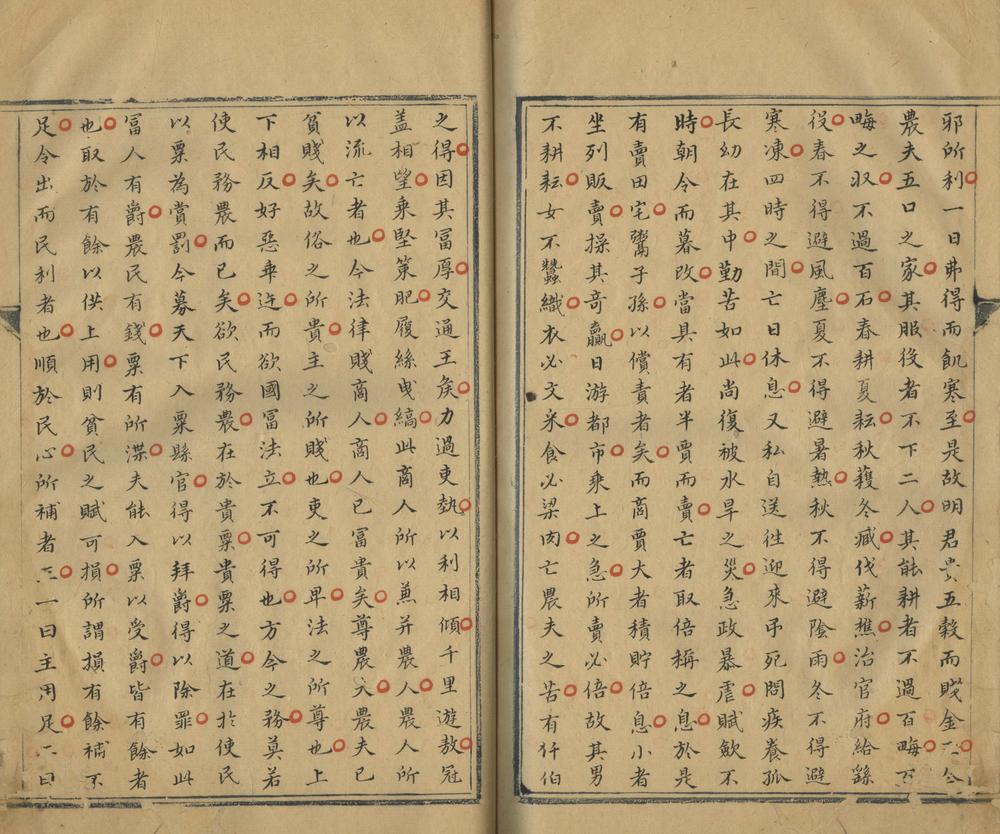 邪所利一日弗得而飢寒至是故明君貴五穀而賤金玉今
農夫五口之家其服役者不下二人其能耕者不過百畮百
畮之収不過百石春耕夏耘秋穫冬臧伐薪樵治官府給繇
役春不得避風塵夏不得避暑熱秋不得避陰雨冬不得避
寒凍四時之間亡日休息又私自送徃迎來弔死問疾養孤
長幼在其中勤苦如此尚復被水旱之災急政暴虐賦歛不
時朝令而暮改當具有者半賈而賣亡者取倍稱之息於是
有賣田宅鬻子孫以償責者矣而商賈大者積貯倍息小者
坐列販賣操其竒贏日游都市乘上之急所賣必倍故其男
不耕耘女不蠶織衣必文米食必梁肉亡農夫之苦有仟伯
之得因其冨厚交通王矦力過吏埶以利相傾千里遊敖冠
盖相望乘堅策肥履絲曳縞此商人所以兼并農人農人所
以流亡者也今法律賤商人商人已富貴矣尊農夫農夫已
貧賤矣故俗之所貴主之所賤也吏之所卑法之所尊也上
下相反好惡乖迕而欲國冨法立不可得也方今之務莫若
使民務農而已矣欲民務農在於貴粟貴粟之道在扵使民
以粟為賞罰今募天下入粟縣官得以拜爵得以除罪如此
冨人有爵農民有錢粟有所渫夫能入粟以受爵皆有餘者
也取於有餘以供上用則貧民之賦可損所謂損有餘補不
足令出而民利者也順於民心所補者三一曰主用足二曰